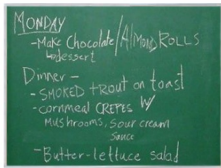 MONDAY
- Make Chocolate/Almond ROLLS
dessert
Dinner -
- SMOKED tROUT on toast
- CORNmeal CREPES w/
Mushrooms, Sour cream
Sauce
- Butter-lettuce salad